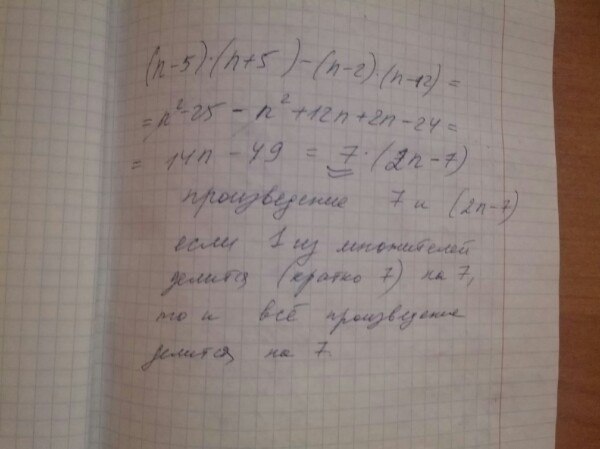 (n-5)·(n+5)-(n-2)·(n-12)=
=n²-25-n²+12n+2n-24=
= 14n-49 = 7·(2n-7)
произведение 7 и (2n-7)
если 1 из множителей
делится (кратно 7) на 7,
то и всё произведение
делится на 7.